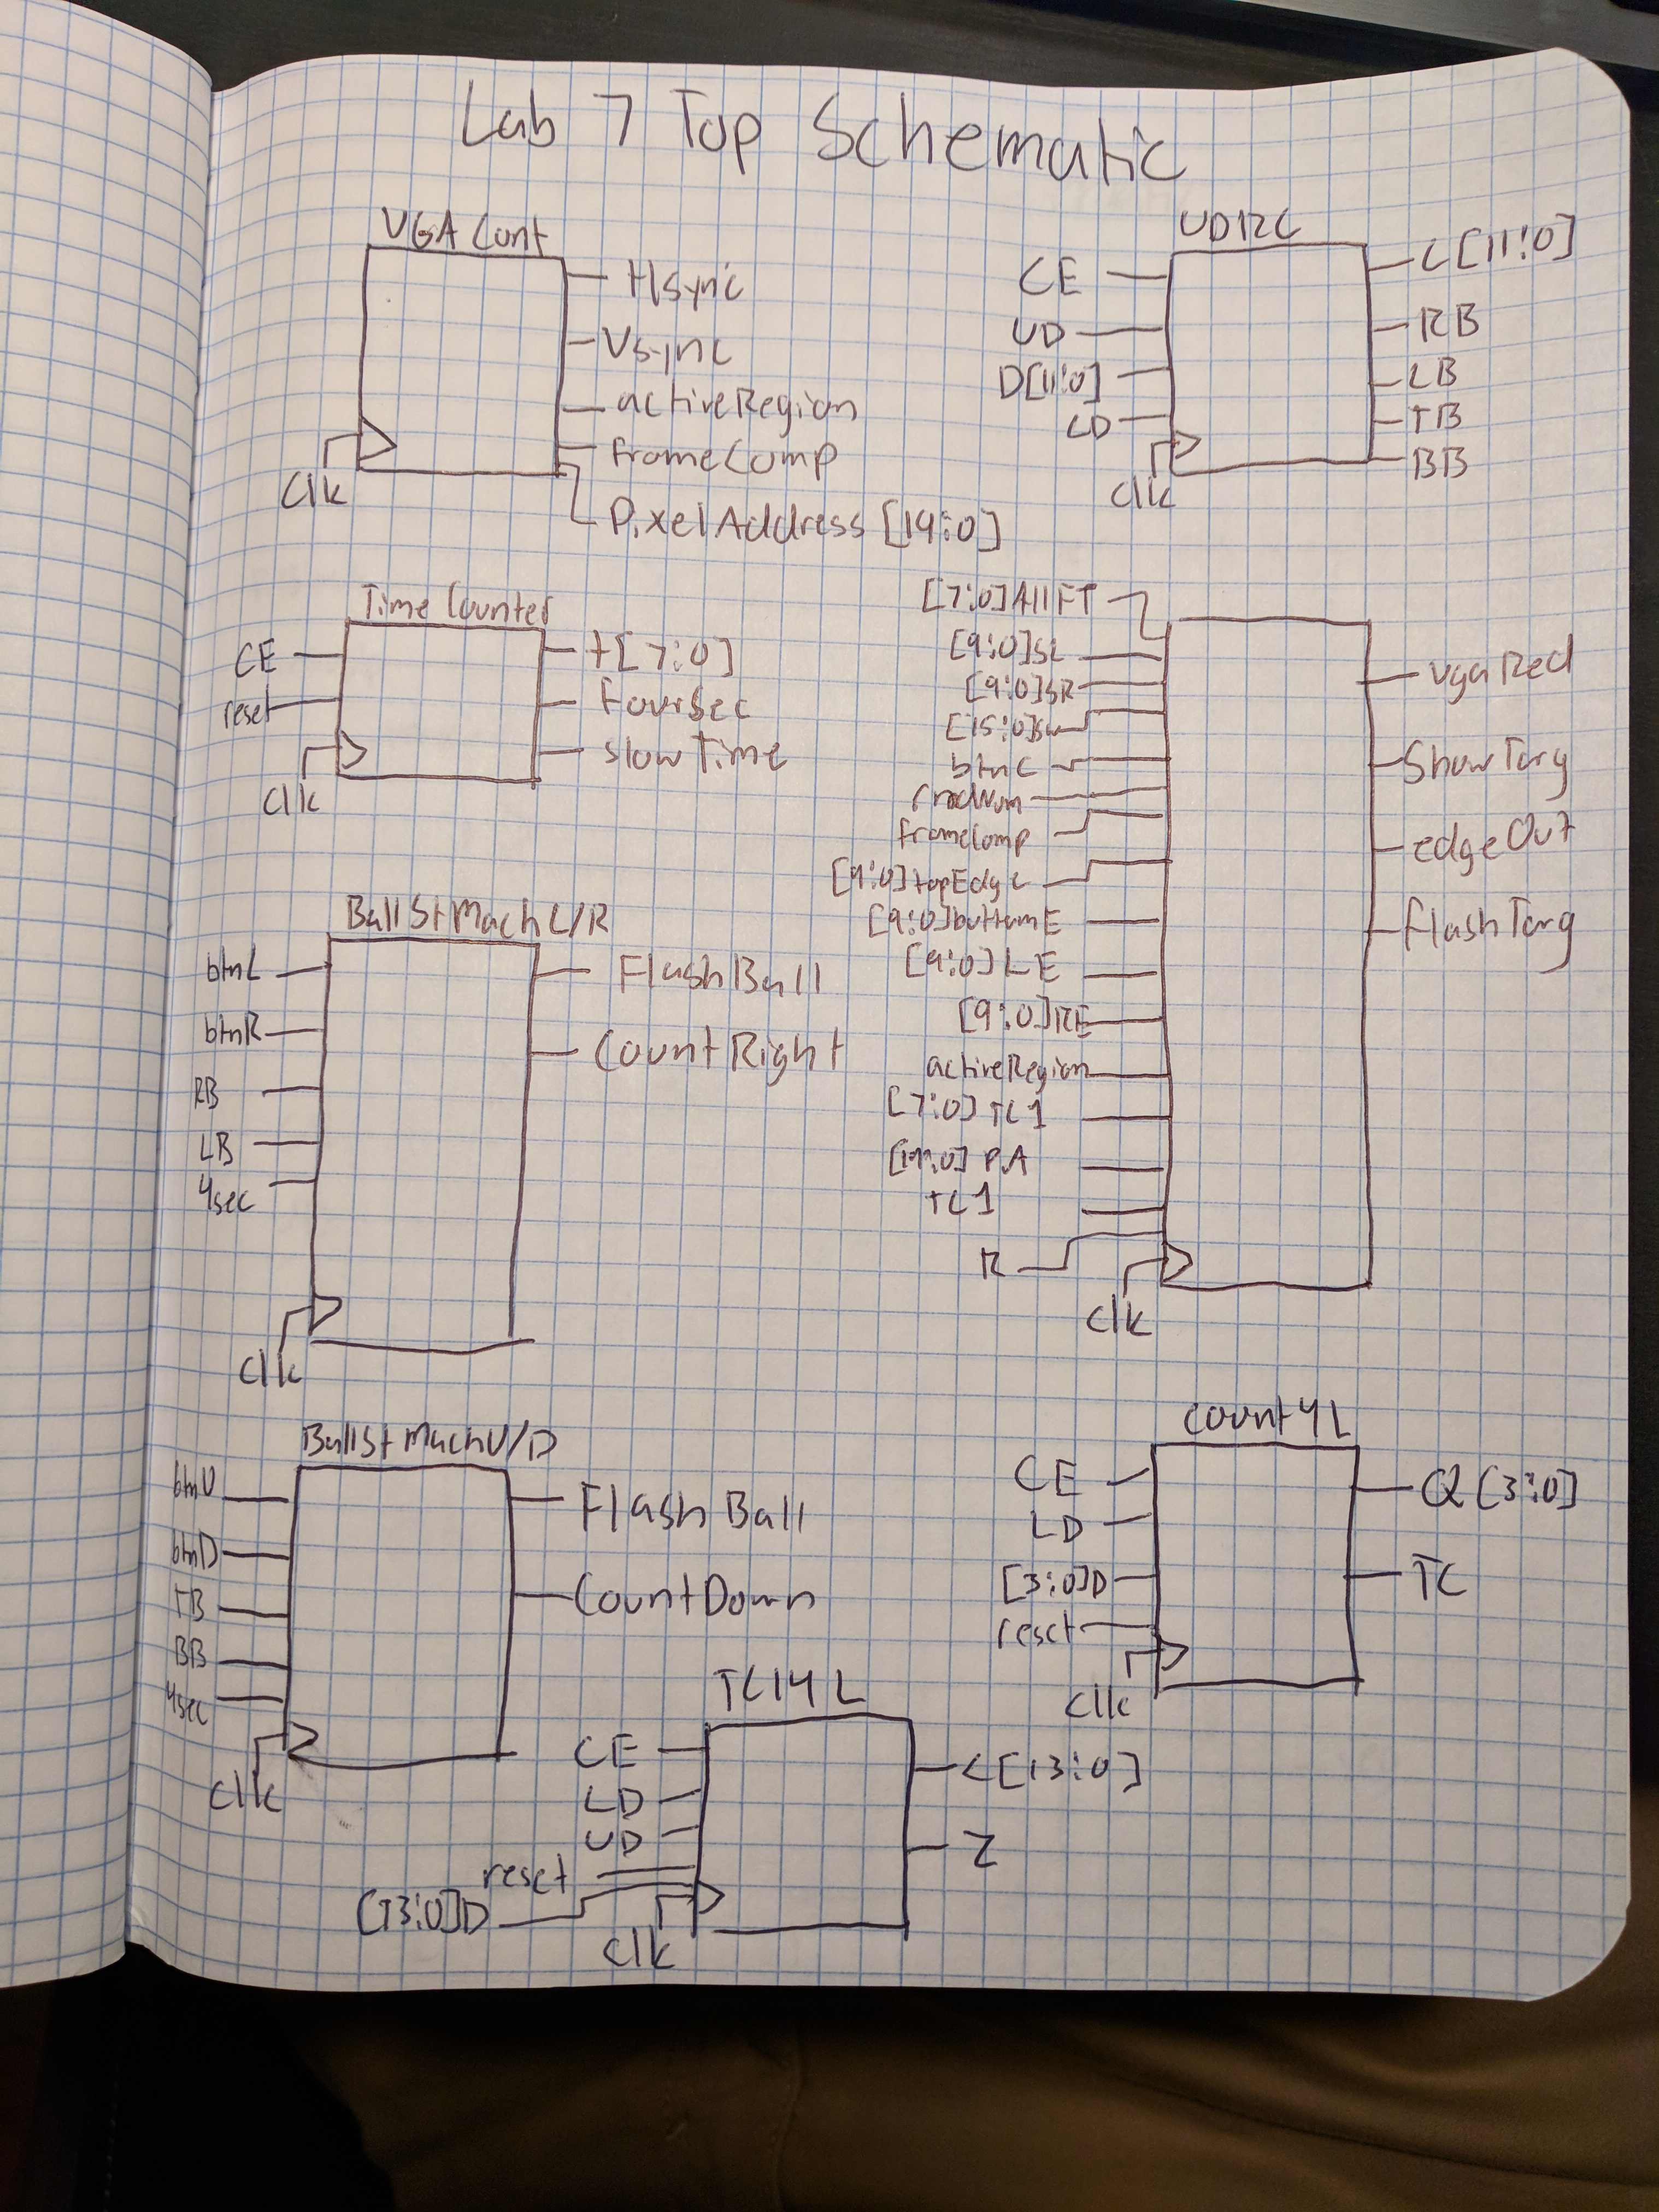 Lab 7 Top Schematic
VGA Cont
Hsync
Vsync
activeRegion
frameComp
PixelAddress [19:0]
Clk
UD12C
CE
UD
D[11:0]
LD
Clk
C[11:0]
RB
LB
TB
BB
Time Counter
CE
reset
Clk
t[7:0]
FourSec
slowTime
[7:0]AllFT
[9:0]SL
[9:0]SR
[15:0]sw
btnC
rndNum
frameComp
[9:0]topEdge
[9:0]buttomE
[9:0]LE
[9:0]RE
activeRegion
[7:0] TC1
[19:0] PA
TC1
R
Clk
vgaRed
ShowTarg
edgeOut
FlashTarg
BallStMachL/R
btnL
btnR
RB
LB
4sec
Clk
FlashBall
CountRight
BallStMachU/D
btnU
btnD
TB
BB
4sec
Clk
FlashBall
CountDown
Count4L
CE
LD
[3:0]D
reset
Clk
Q[3:0]
TC
TC14L
CE
LD
UD
reset
[13:0]D
Clk
C[13:0]
Z